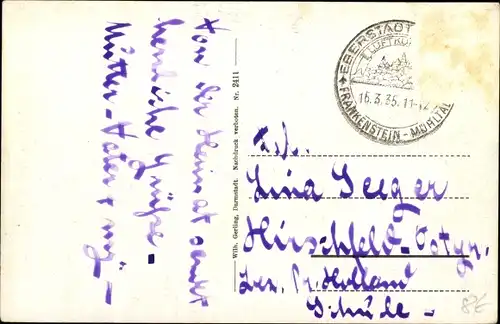 Von der Heimat sendet
herzliche Grüße -
Mutter - Vater
Wilh. Gerling, Darmstadt. Nachdruck verboten. Nr. 2411
EBERSTADT
LUFTKU
16.3.35.11-12
FRANKENSTEIN - MÜHLTAL
Frl.
Lina Seeger
Hirschfeld-Ostpr.
Bez. Pr. Holland
Schule -
8€